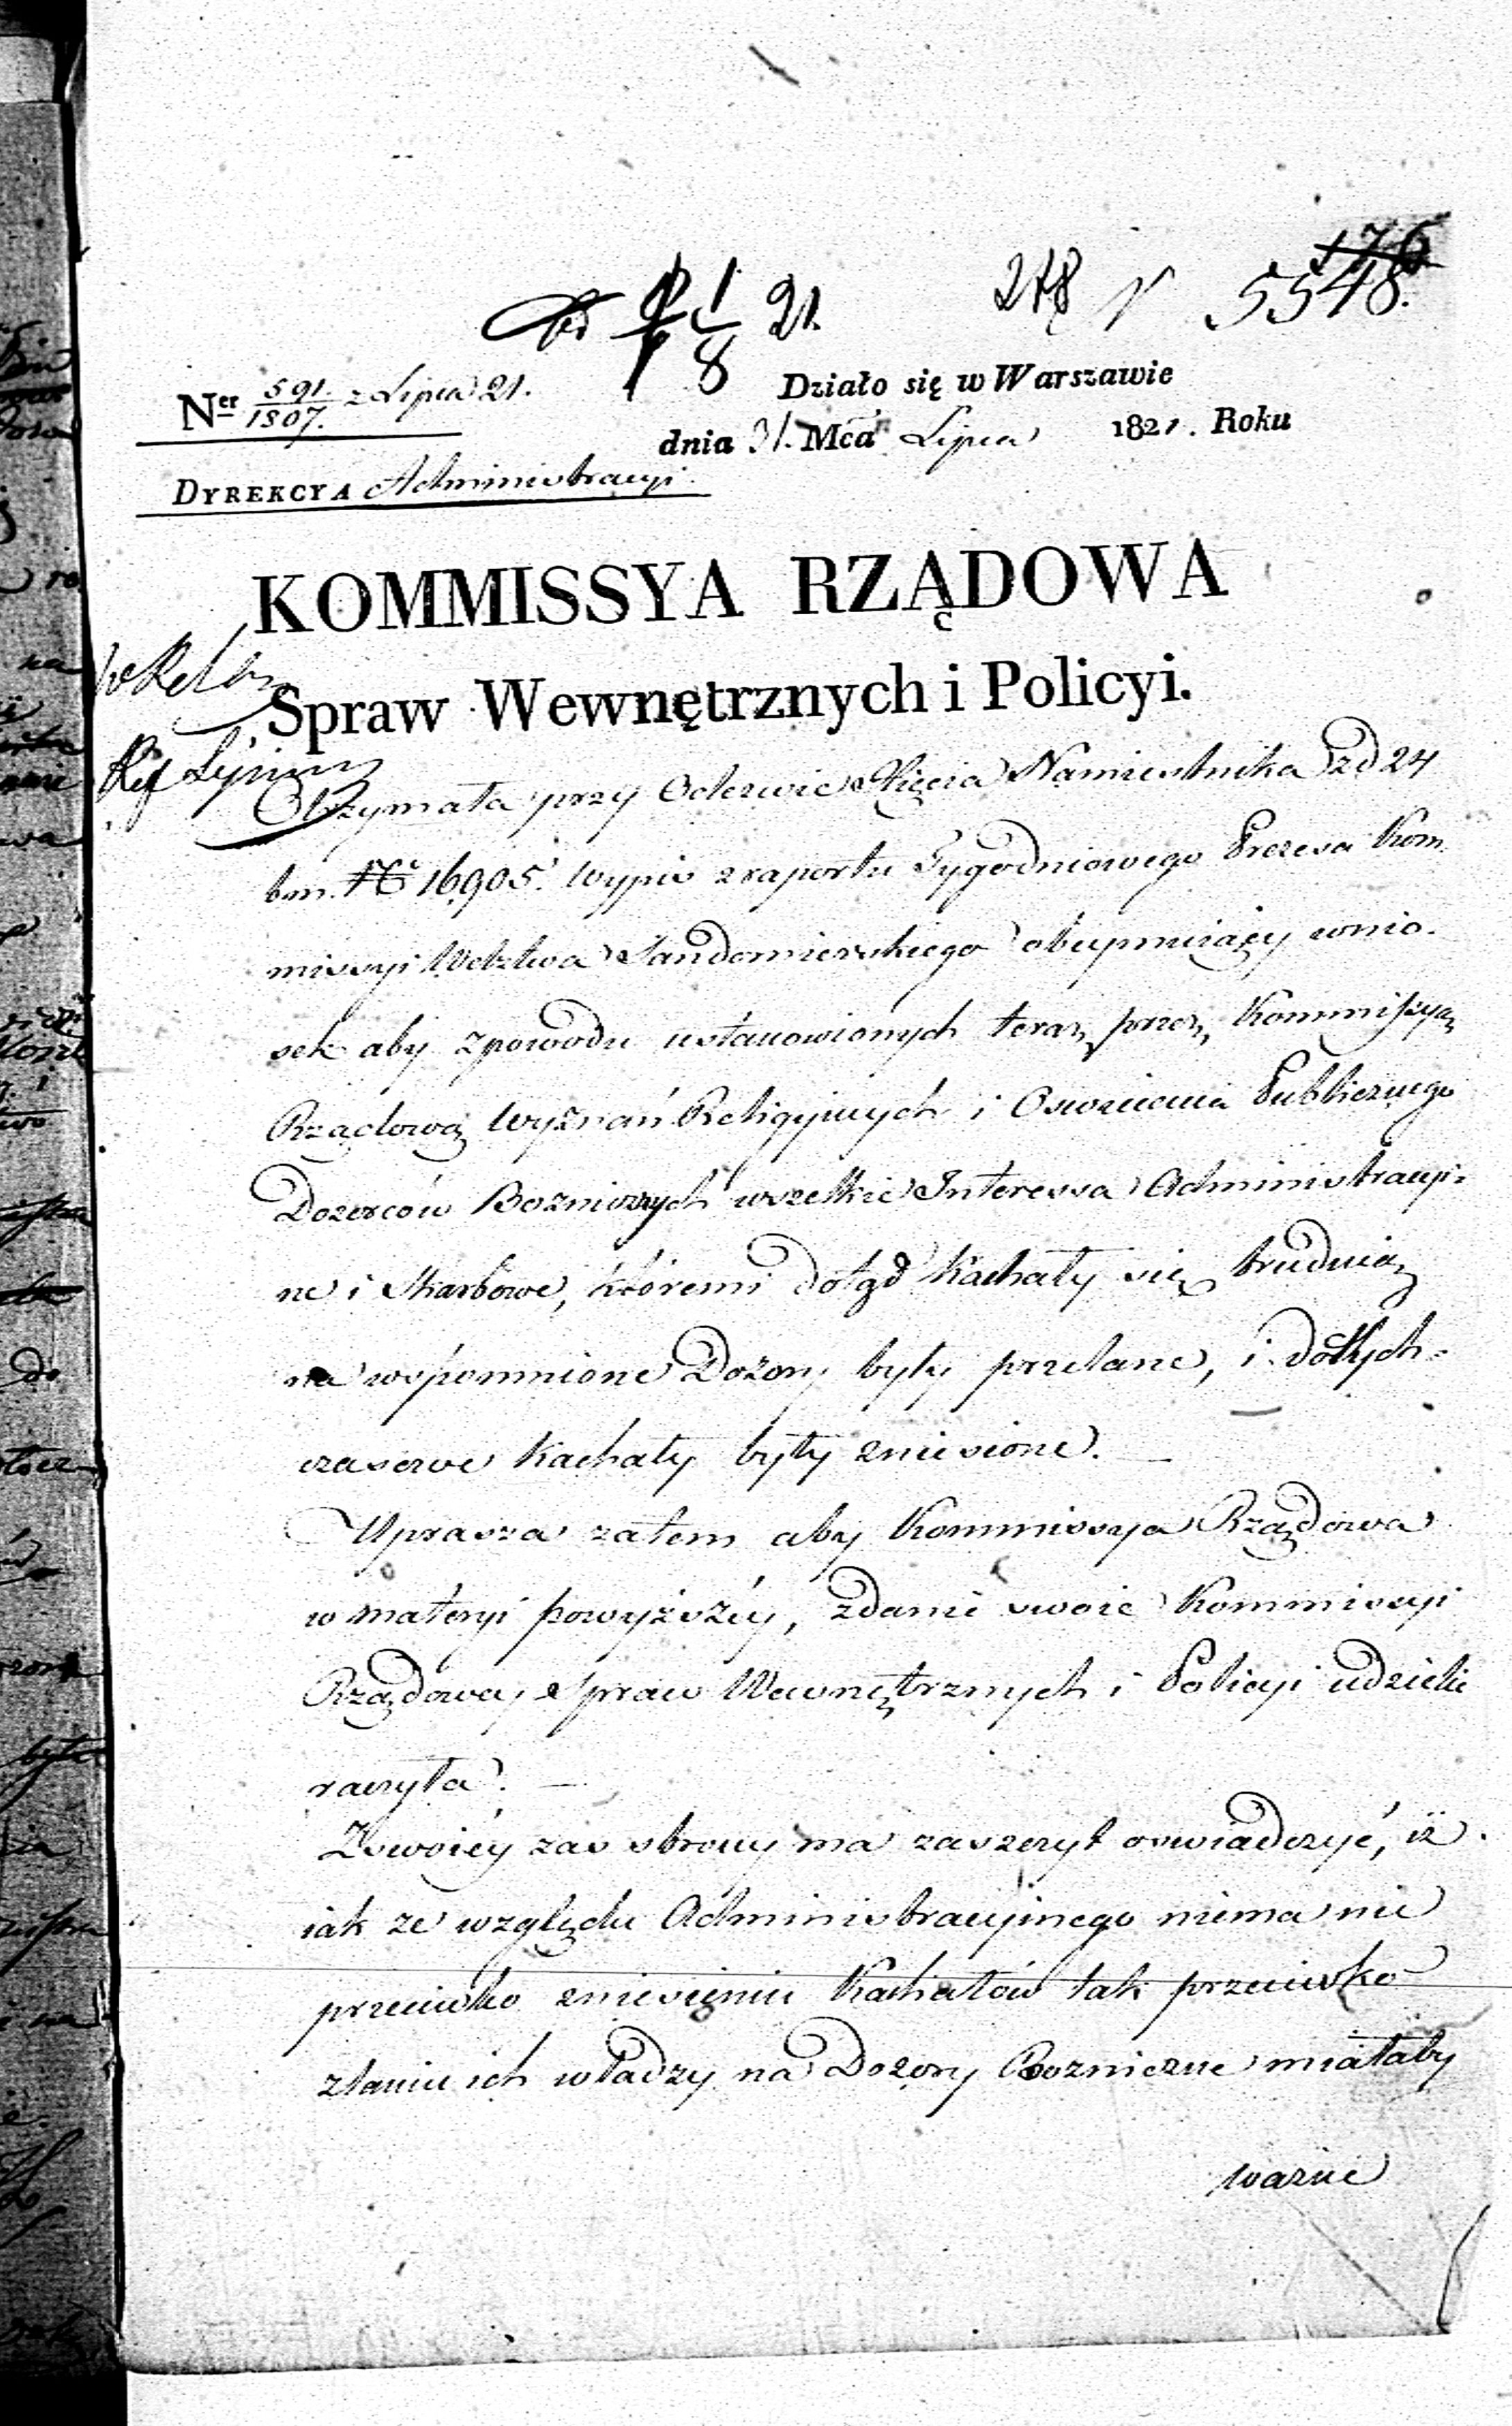 278 5548.
21.
8
Działo się w Warszawie
Ner 591./1807. z Lipca 21.
dnia 31. Mca Lipca 1821. Roku
DYREKCYA Administracyi.
KOMMISSYA RZĄDOWA
Spraw Wewnętrznych i Policyi.
Otrzymała przy Odezwie Xięcia Namiestnika z d 24
b.m. No 16,905. wypis z raportu Tygodniowego Prezesa Kom
missyi Wdztwa Sandomierskiego obeymuiący wnio-
sek aby z powodu ustanowionych teraz przez Kommissyą
Rządową Wyznań Religijnych i Oswiecenia Publicznego
Dozorców Bozniczych wszelkie Interessa Administracyi-
ne i Skarbowe, któremi dotąd Kachały się trudnią
na wspomnione Dozory były przelane, i dotych-
czasowe Kachały były zniesione.
Uprasza zatem aby Kommissya Rządowa
w materyi powyższéy, zdanie swoie Kommissyi
Rządowey Spraw Wewnętrznych i Policyi udzielić
raczyła.
Z swoiéy zas strony ma zaszczyt oswiadczyć, iż
iak ze względu Administracyinego niema nic
przeciwko zniesieniu Kachałów tak przeciwko
zlaniu ich władzy na Dozory Boznicze miałaby
ważne